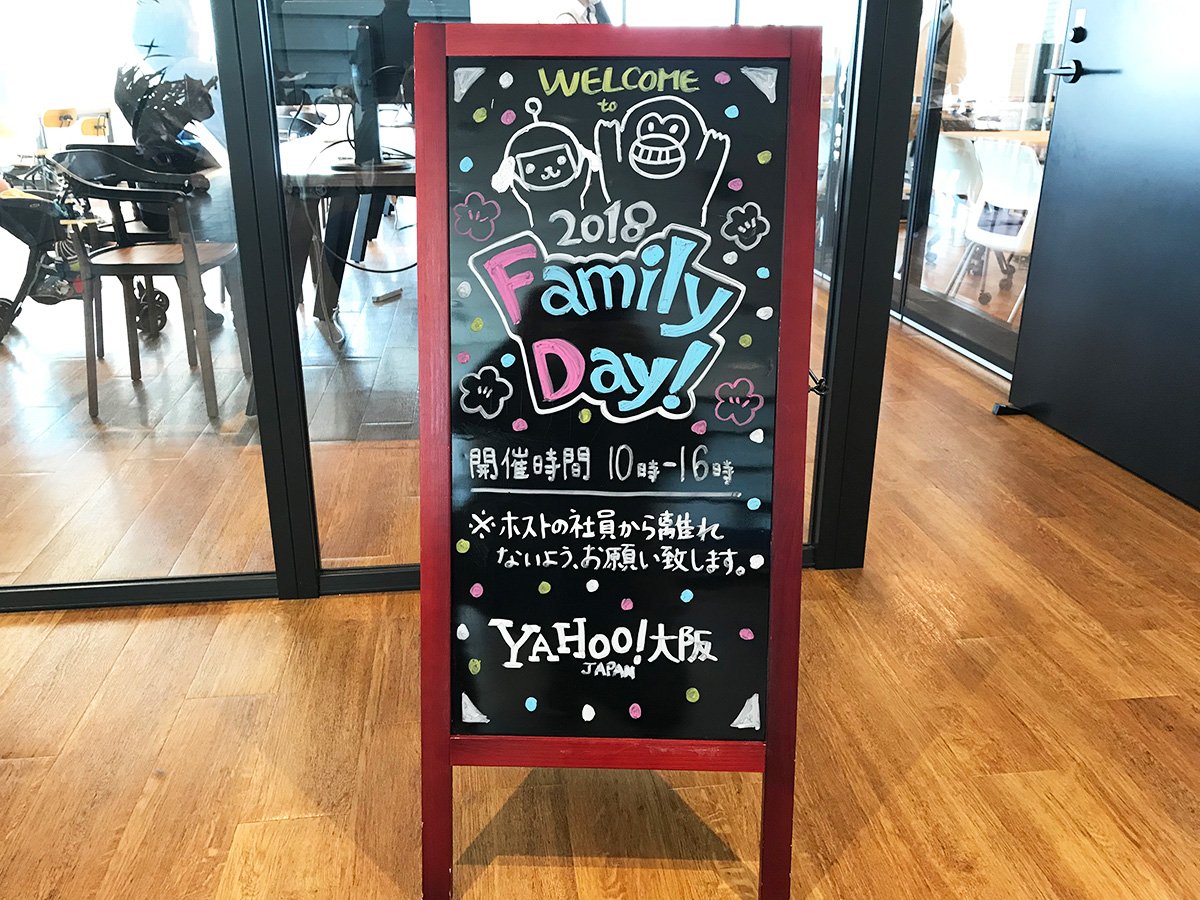 WELCOME
to
2018
Family
Day!
開催時間 10時-16時
※ホストの社員から離れ
ないよう、お願い致します。
YAHOO!大阪
JAPAN